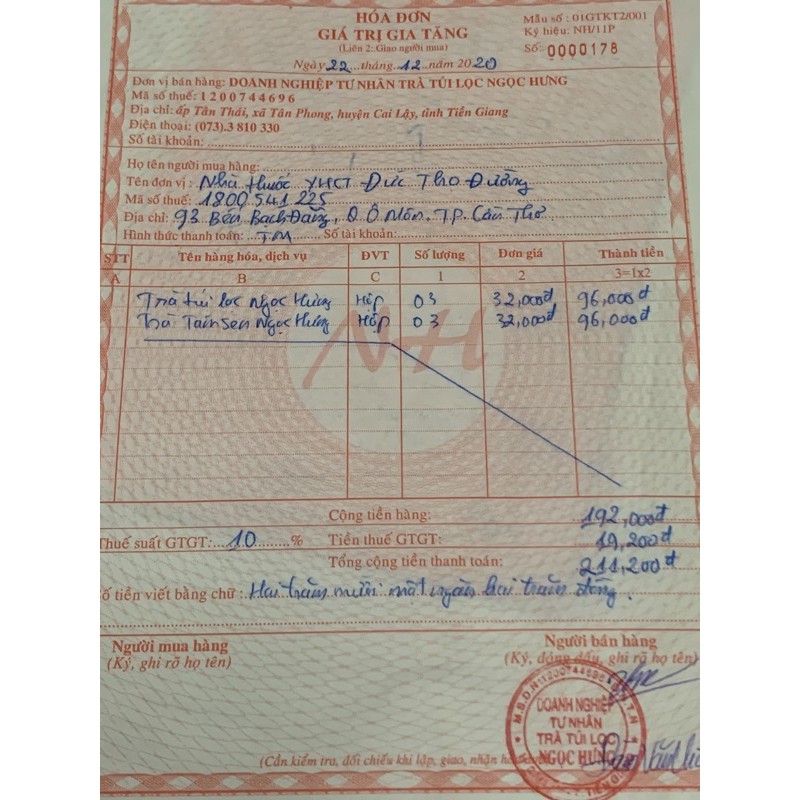 HÓA ĐƠN
GIÁ TRỊ GIA TĂNG
(Liên 2: Giao người mua)
Mẫu số : 01GTKT2/001
Ký hiệu: NH/11P
Số: 0000178
Ngày 22 tháng 12 năm 2020
Đơn vị bán hàng: DOANH NGHIỆP TƯ NHÂN TRÀ TÚI LỌC NGỌC HƯNG
Mã số thuế: 1200744696
Địa chỉ: ấp Tân Thái, xã Tân Phong, huyện Cai Lậy, tỉnh Tiền Giang
Điện thoại: (073).3 810 330
Số tài khoản:
Họ tên người mua hàng:
Tên đơn vị : Nhà thuốc YHCT Đức Thọ Đường
Mã số thuế: 1800541225
Địa chỉ: 93 Bến Bạch Đằng, Q. Ô Môn. TP. Cần Thơ
Hình thức thanh toán: TM Số tài khoản:
STT Tên hàng hóa, dịch vụ ĐVT Số lượng Đơn giá Thành tiền
A B C 1 2 3=1x2
Trà túi lọc Ngọc Hưng Hộp 03 32,000đ 96,000đ
Trà Tâm Sen Ngọc Hưng Hộp 03 32,000đ 96,000đ
NH
Cộng tiền hàng: 192,000đ
Thuế suất GTGT: 10 % Tiền thuế GTGT: 19,200đ
Tổng cộng tiền thanh toán: 211,200đ
Số tiền viết bằng chữ : Hai trăm mười một ngàn hai trăm đồng.
Người mua hàng
(Ký, ghi rõ họ tên)
Người bán hàng
(Ký, đóng dấu, ghi rõ họ tên)
M.S.D.N:1200744696
DOANH NGHIỆP
TƯ NHÂN
TRÀ TÚI LỌC
NGỌC HƯNG
(Cần kiểm tra, đối chiếu khi lập, giao, nhận